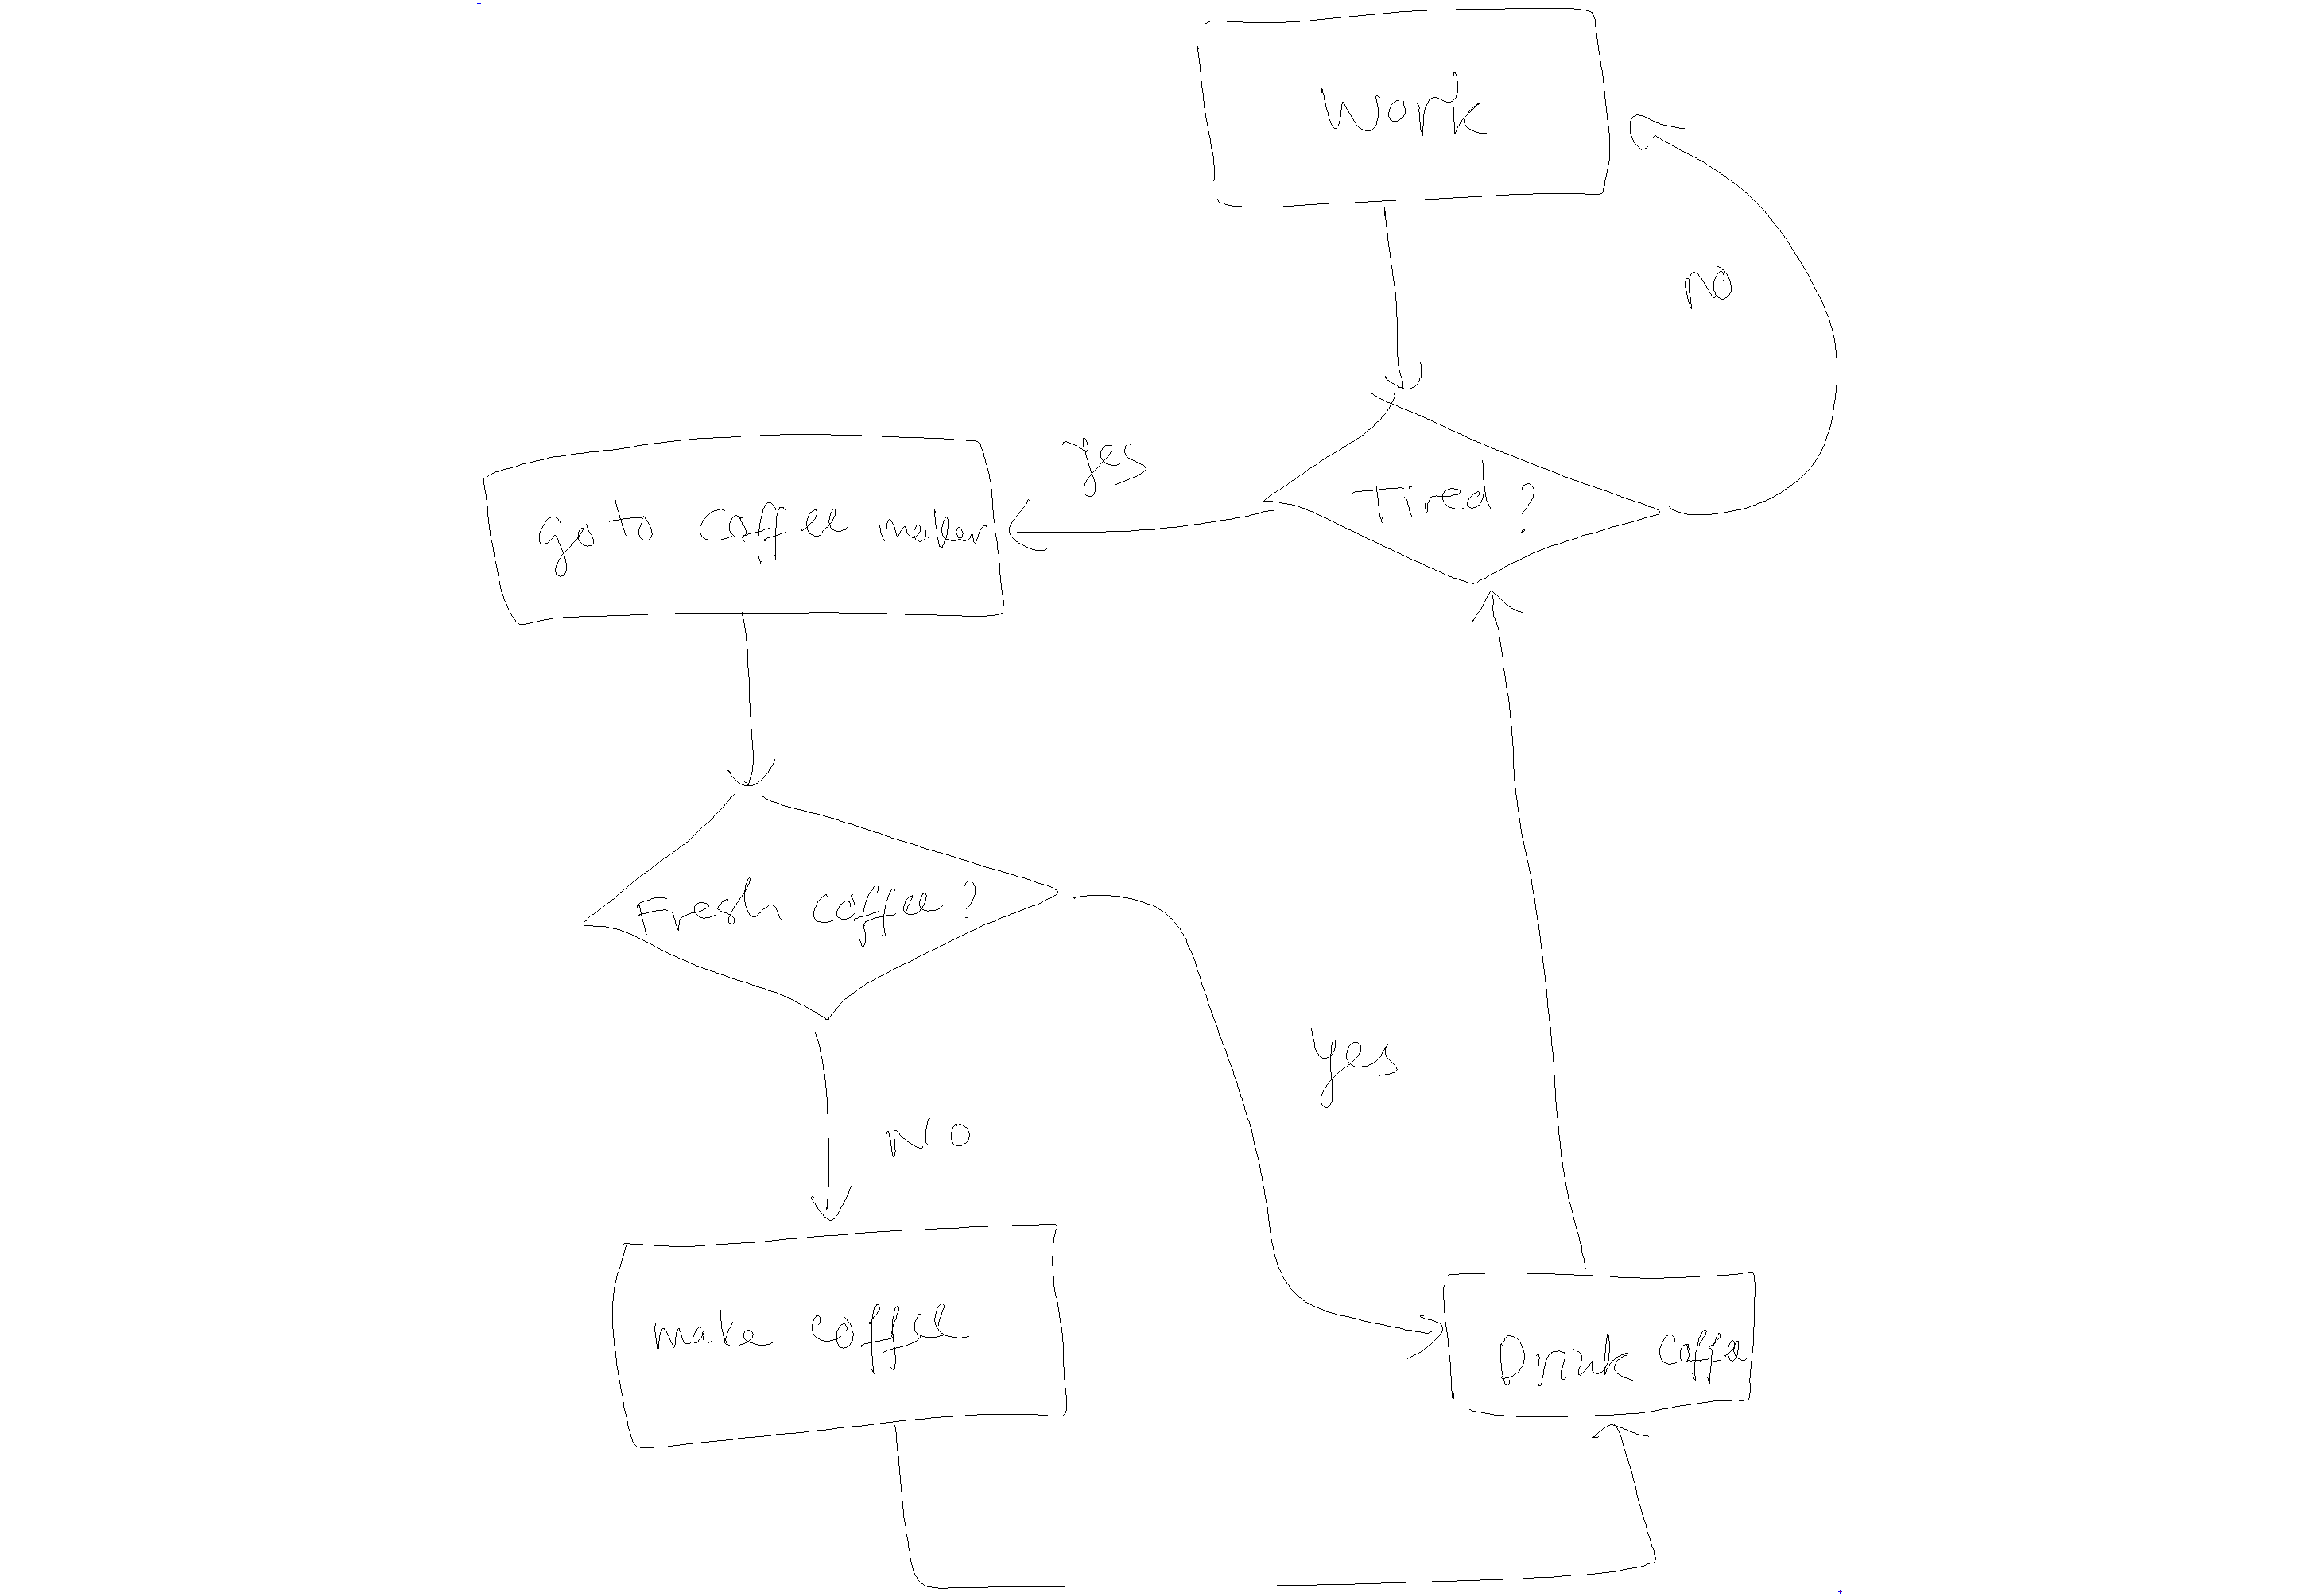 Work
NO
Yes
Tired?
go to coffee maker
Fresh coffee?
Yes
NO
make coffee
Drink coffee